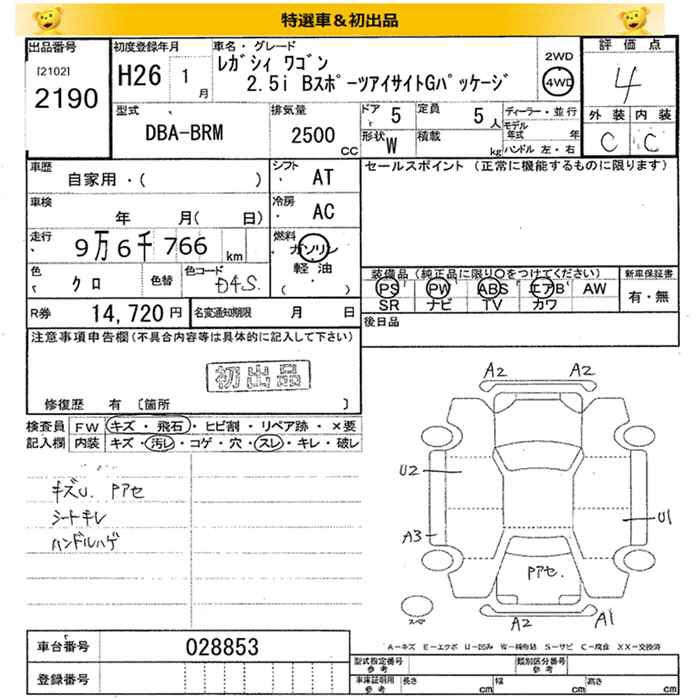 特選車＆初出品
出品番号
[2102]
2190
初度登録年月
H26 1月
車名・グレード
レガシィ ワゴン
2.5i BスポーツアイサイトGパッケージ
2WD
4WD
評価点
4
外装 内装
C C
型式
DBA-BRM
排気量
2500 CC
ドア 5
定員 5人
形状 W
積載 kg
ディーラー・並行
モデル年式 年
ハンドル 左・右
車歴
自家用・( )
シフト AT
セールスポイント (正常に機能するものに限ります)
車検
年 月( 日)
冷房 AC
走行
9万6千766 km
燃料 ガソリン
軽油
( )
色
クロ
色替
色コード
D4S.
装備品(純正品に限り○をつけてください)
新車保証書
PS PW ABS エアB AW
SR ナビ TV カワ
有・無
R券 14,720円
名変通知期限 月 日
後日品
注意事項申告欄(不具合内容等は具体的に記入して下さい)
初出品
修復歴 有 〔箇所 〕
検査員記入欄
FW キズ・飛石・ヒビ割・リペア跡・×要
内装 キズ・汚レ・コゲ・穴・スレ・キレ・破レ
キズU. Pアセ
シートキレ
ハンドルハゲ
A2 A2
U2
U1
A3
Pアセ.
A2 A1
スペア
A-キズ E-エクボ U-凹み W-補修跡 S-サビ C-腐食 XX-交換済
車台番号 028853
登録番号
型式指定番号 参考
類別区分番号 参考
車庫証明用 参考
長さ cm 幅 cm 高さ cm